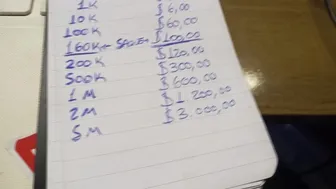 1K
10K $6,00
100K $60,00
160K + SAQUE → $100,00
200K $120,00
500K $300,00
1M $600,00
2M $1200,00
5M $3.000,00